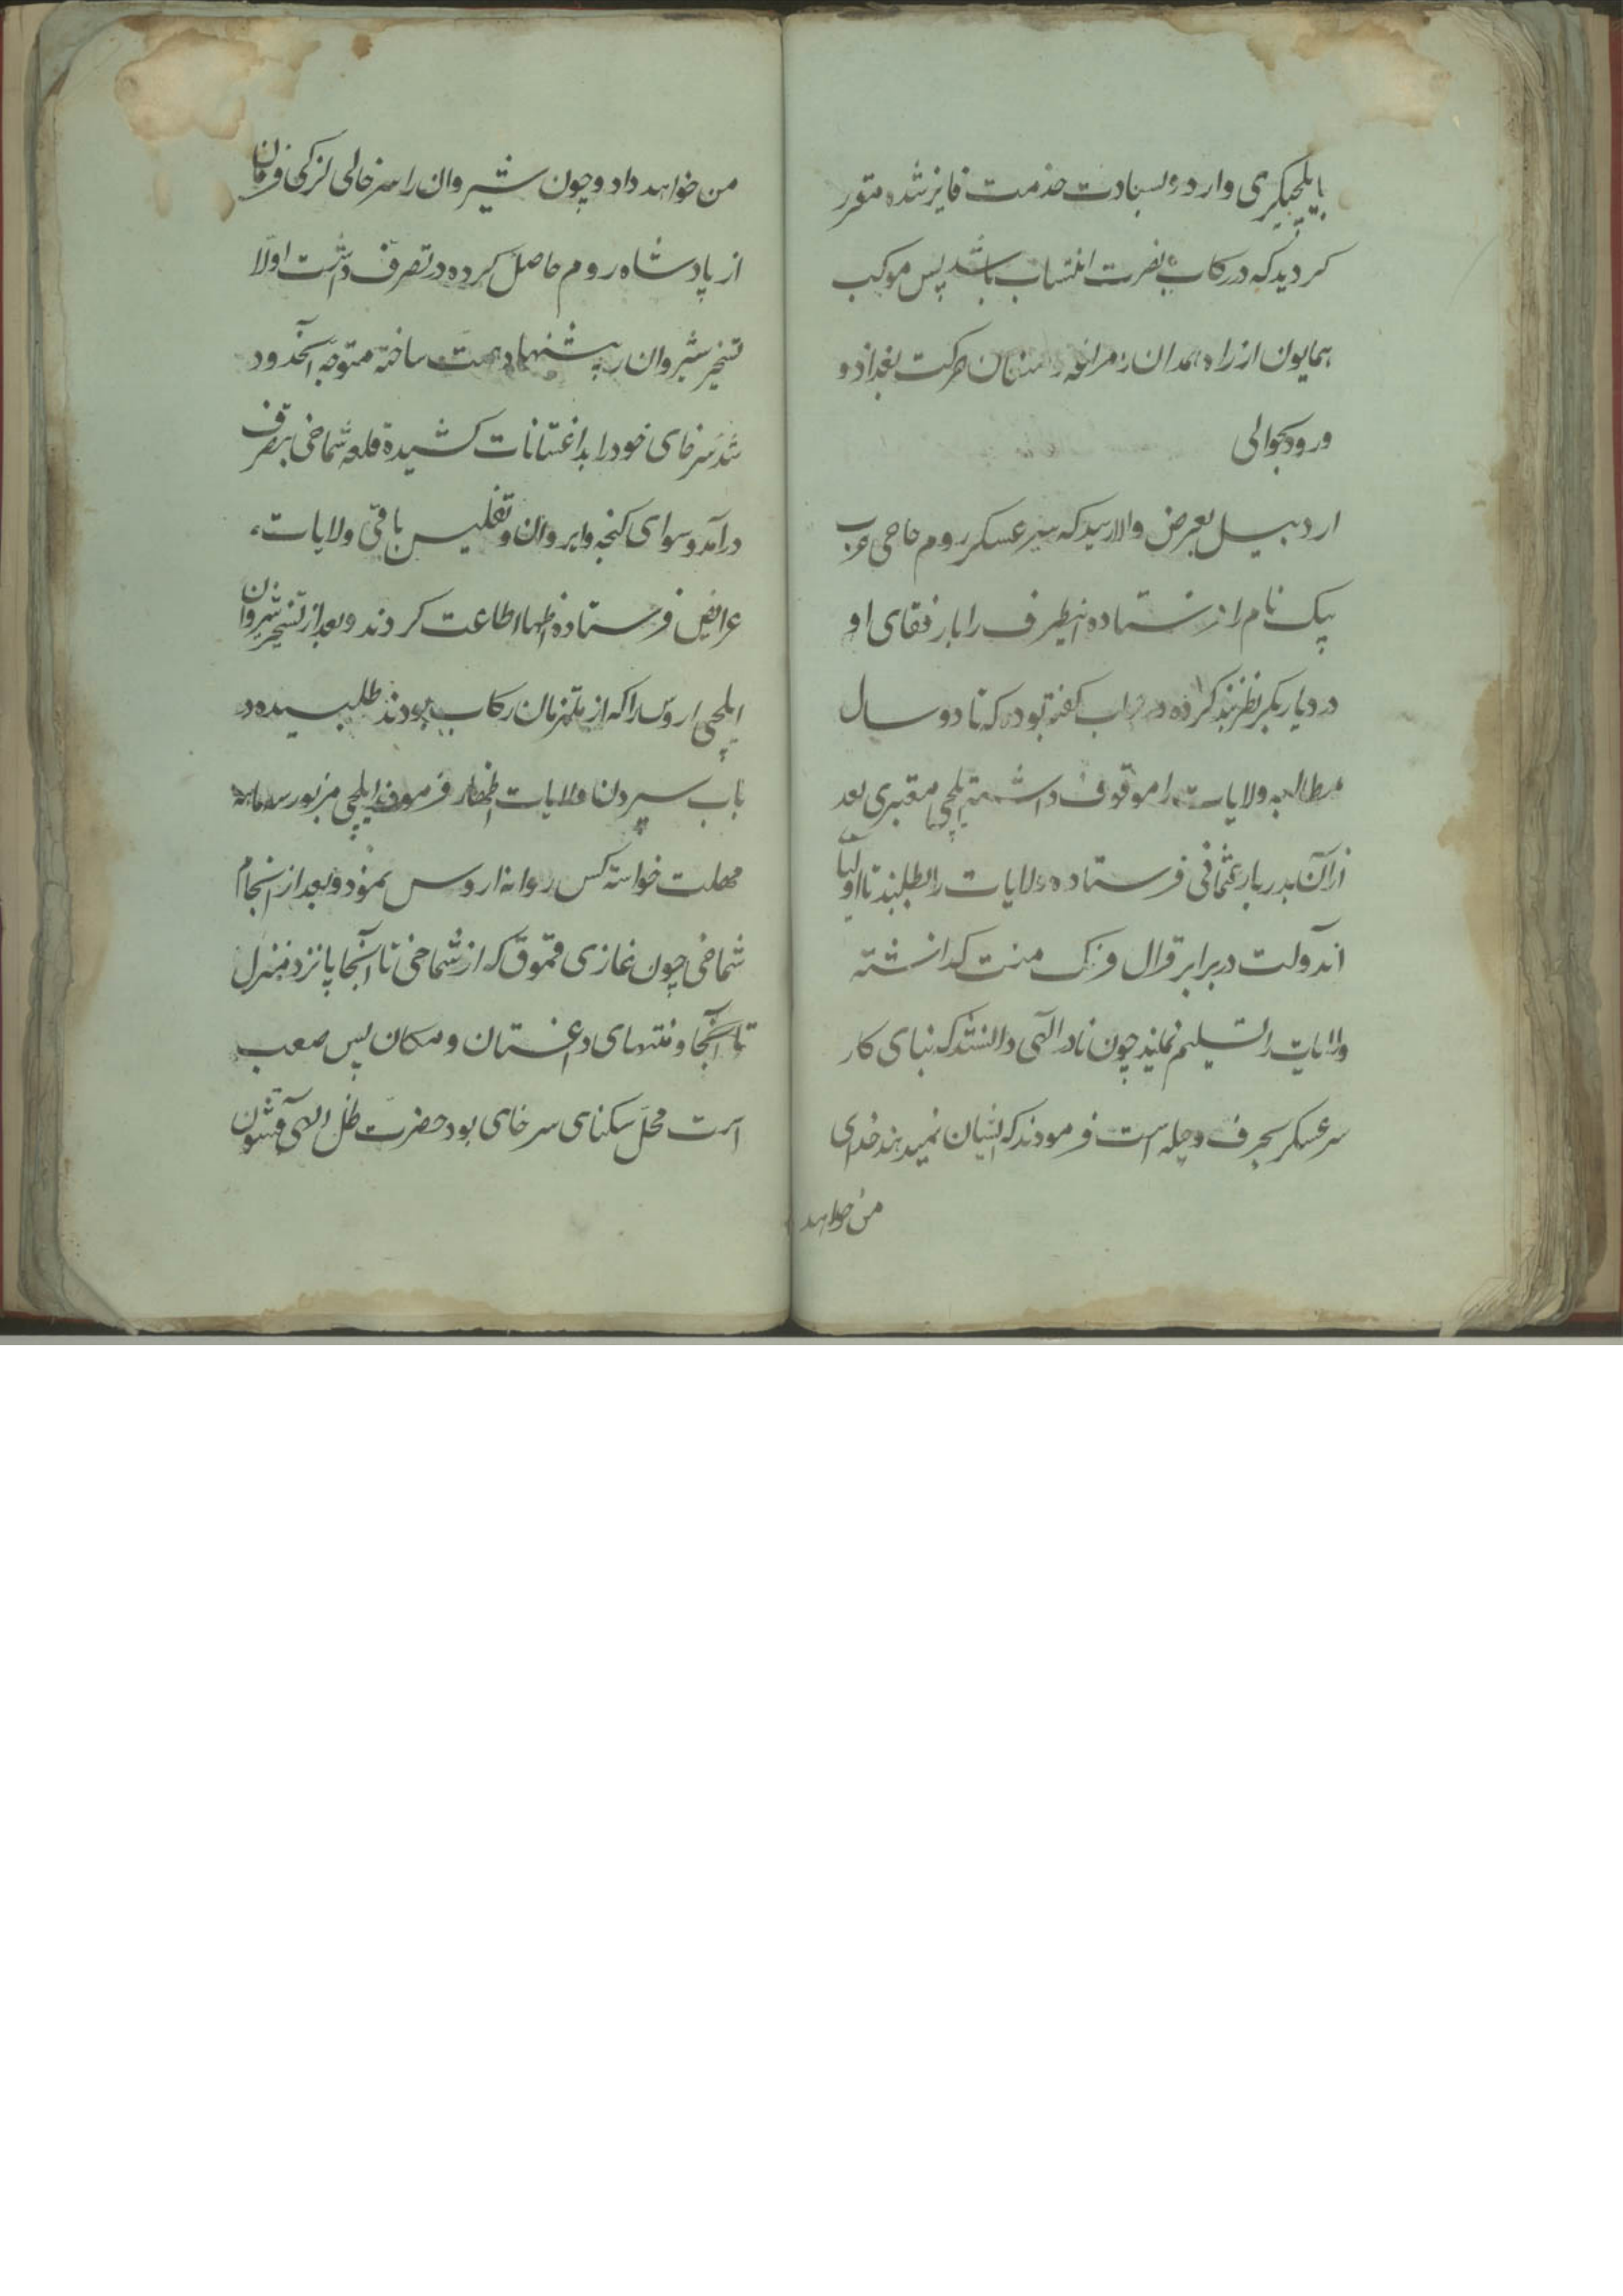 بایلچیکری وارد و بسعادت خدمت فایز شده مقرر
کردید که در رکاب نصرت انتساب باشد پس موکب
همایون از راه همدان و مراغه حرکت بغداد و
ورود بحوالی
اردبیل بعرض والا رسید که سرعسکر روم حاجی عرب
بیک نام را فرستاده اینطرف را با رفقای او
در دیاربکر نظربند کرده در جواب گفته بود که تا دو سال
مطالبه ولایات را موقوف داشته ایلچی معتبری بعد
از آن بدربار عثمانی فرستاده ولایات را بطلبند تا اولیا
آندولت در برابر قرال فرنک منت گذاشته
ولایات را تسلیم نمایند چون نادر الهی دانستند که بنای کار
سرعسکر بحرف و حیله است فرمودند که ایشان نمیدهند خدای
من خواهد
من خواهد داد و چون شیروان را سرخای لزکی فرمان
از پادشاه روم حاصل کرده در تصرف داشت اولا
تسخیر شیروان را پیشنهاد همت ساخته متوجه آنحدود
شد سرخای خود را بداغستانات کشیده قلعه شماخی بتصرف
درآمد و سوای کنجه و ایروان و تفلیس باقی ولایات
عرایض فرستاده اظهار اطاعت کردند و بعد از تسخیر شیروان
ایلچی اروس را که از ملتزمان رکاب بودند طلبیده در
باب سپردن ولایات اظهار فرمودند ایلچی مزبور سه ماهه
مهلت خواسته کس روانه اروس نمود و بعد از انجام
شماخی چون غازی قموق که از شماخی تا آنجا پانزده منزل
تا آنجا و منتهای داغستان و مکان پس صعب
است محل سکنای سرخای بود حضرت ظل الهی قشون